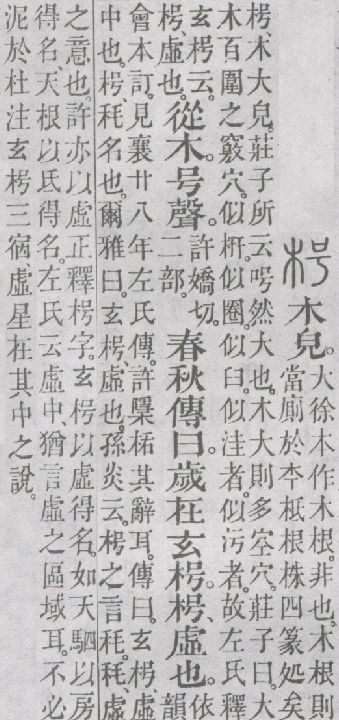 枵木皃。大徐木作木根。非也。木根則
當廁於本柢根株四篆処矣
枵、木大皃。莊子所云呺然大也。木大則多空穴。莊子曰。大
木百圍之竅穴。似枅。似圈。似臼。似洼者。似污者。故左氏釋
玄枵云。
枵、虛也。從木。号聲。許嬌切。
二部。春秋傳曰。歲在玄枵。枵、虛也。依
韻
會本訂。見襄廿八年左氏傳。許檃栝其辭耳。傳曰。玄枵、虛
中也。枵秏名也。爾雅曰。玄枵、虛也。孫炎云。枵之言秏。秏、虛
之意也。許亦以虛正釋枵字。玄枵以虛得名。如天駟以房
得名、天根以氐得名。左氏云虛中、猶言虛之區域耳。不必
泥於杜注玄枵三宿虛星在其中之說。